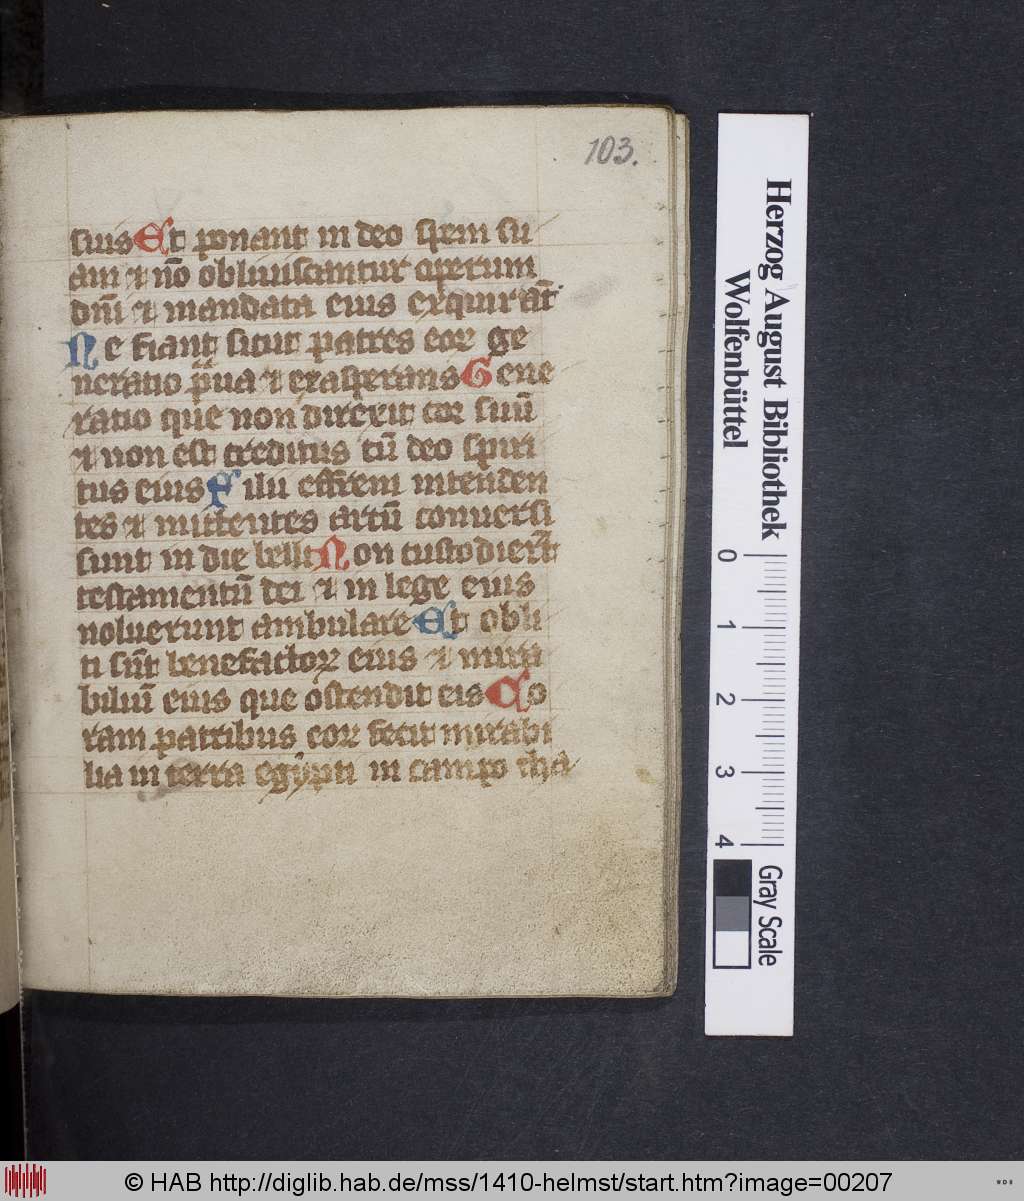 103.
suis Et ponant in deo spem su
am ⁊ nō obliuiscantur operum
dn̄i ⁊ mandata eius exquirāt
Ne fiant sicut patres eoꝝ ge
neratio p̄ua ⁊ exasperans Gene
ratio que non direxit cor suū
⁊ non est creditus cū deo spiri
tus eius Filii effrem intenden
tes ⁊ mittentes arcū conuersi
sunt in die belli Non custodierūt
testamentū dei ⁊ in lege eius
noluerunt ambulare Et obli
ti sūt benefactoꝝ eius ⁊ mira
biliū eius que ostendit eis Co
ram patribus eoꝝ fecit mirabi
lia in terra egypti in campo tha
Herzog August Bibliothek
Wolfenbüttel
0 1 2 3 4
Gray Scale
© HAB http://diglib.hab.de/mss/1410-helmst/start.htm?image=00207